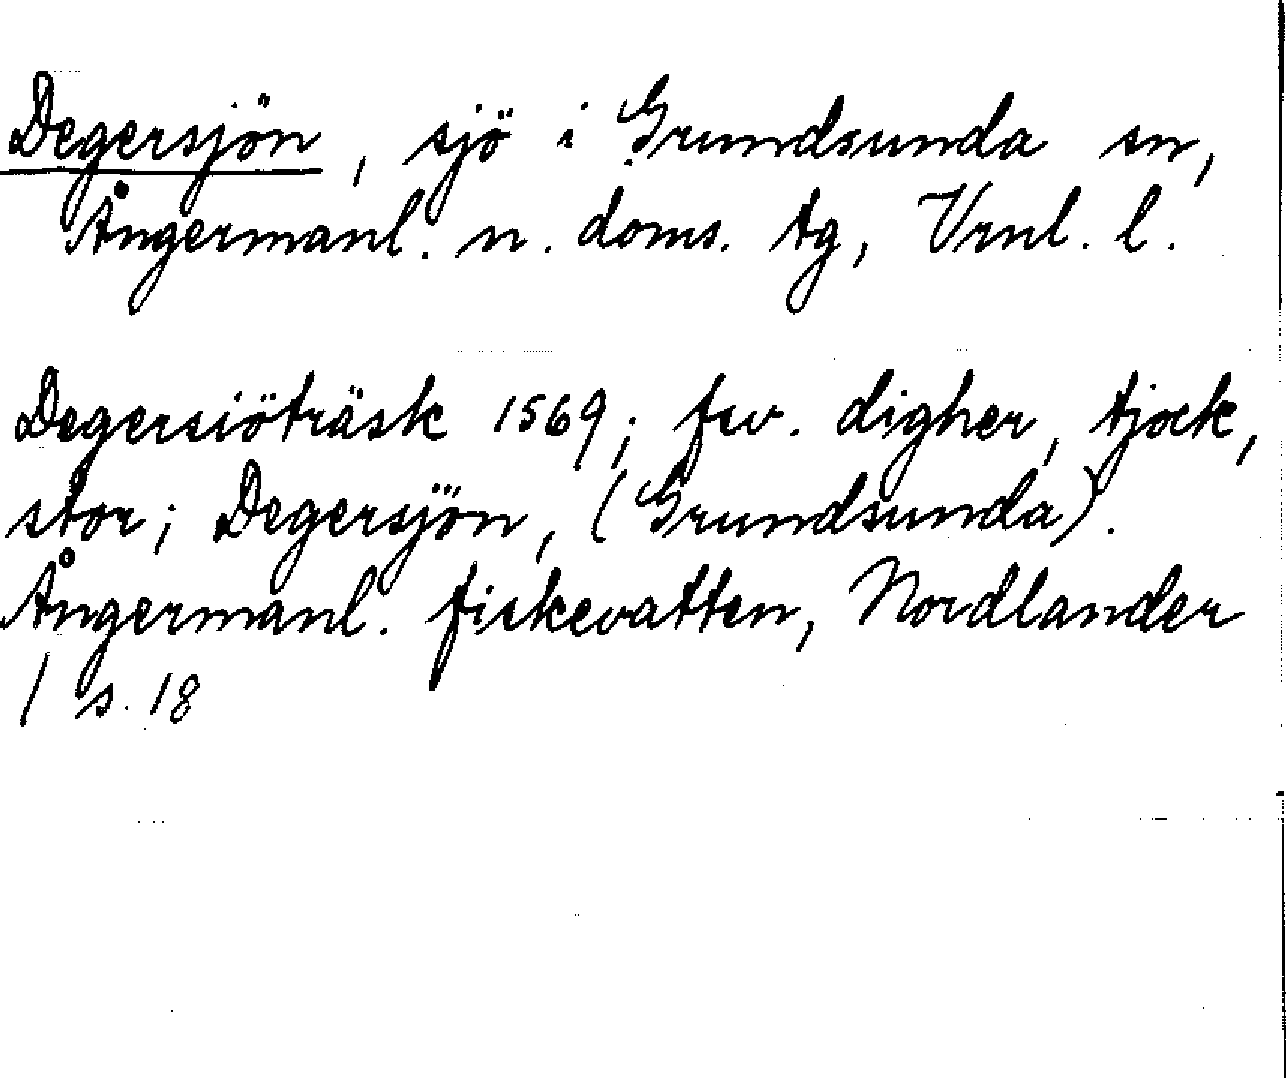 Degersjön, sjö i Grundsunda sn,
Ångermanl. n. doms. tg, Vrnl. l.
Degersiöträsk 1569; fsv. digher, tjock,
stor; Degersjön, (Grundsunda).
Ångermanl. fiskevatten, Nordlander
/ s. 18